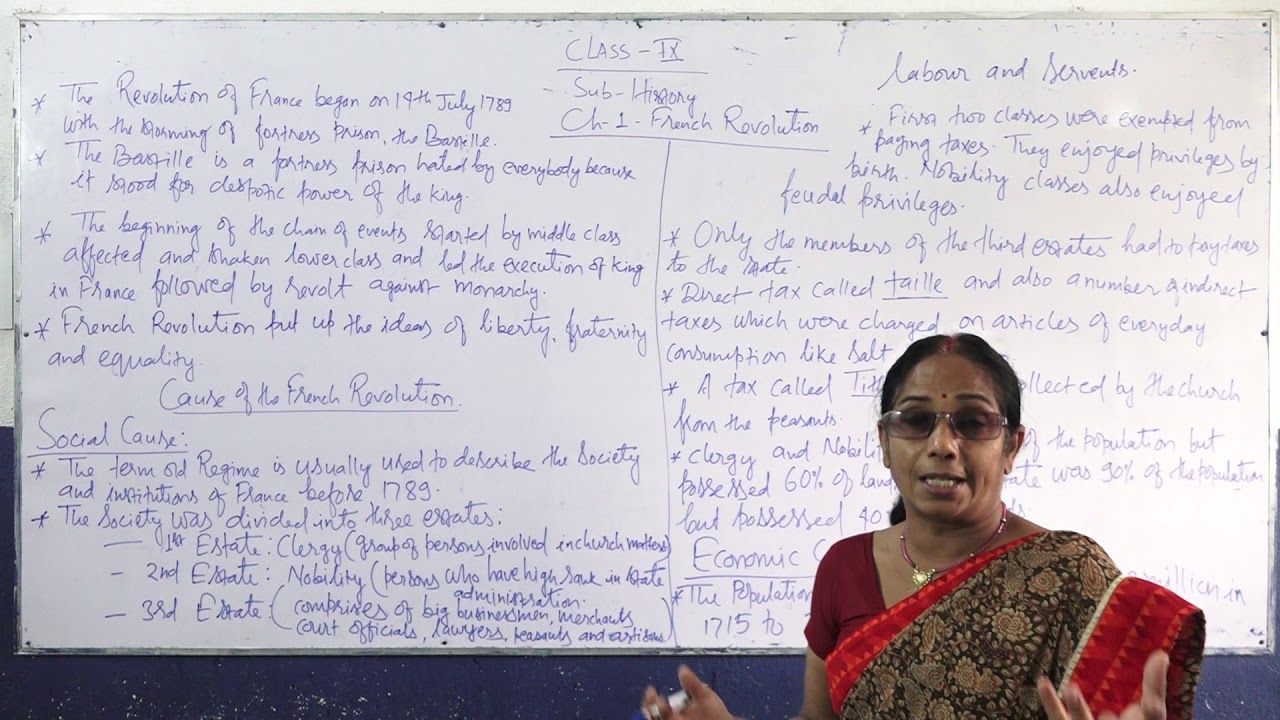 CLASS - IX
Sub - History
Ch-1 - French Revolution
* The Revolution of France began on 14th July 1789
with the storming of fortress prison, the Bastille.
* The Bastille is a fortress prison hated by everybody because
it stood for despotic power of the king.
* The beginning of the chain of events started by middle class
affected and shaken lower class and led the execution of king
in France followed by revolt against monarchy.
* French Revolution put up the ideas of liberty, fraternity
and equality.
Cause of the French Revolution.
Social Cause:
* The term old Regime is usually used to describe the society
and institutions of France before 1789.
* The Society was divided into three estates:
— 1st Estate: Clergy (group of persons involved in church matters)
- 2nd Estate: Nobility (persons who have high rank in state
administration.
- 3rd Estate: (comprises of big businessmen, merchants,
court officials, lawyers, peasants and artisans
labour and servents.
* First two classes were exempted from
paying taxes. They enjoyed privileges by
birth. Nobility classes also enjoyed
feudal privileges.
* Only the members of the third estates had to pay taxes
to the state.
* Direct tax called taille and also a number of indirect
taxes which were charged on articles of everyday
consumption like salt
* A tax called collected by the church
from the peasants.
* Clergy and of the population but
possessed 60% of was 90% of the population
but possessed
Economic
* The Population million in
1715 to